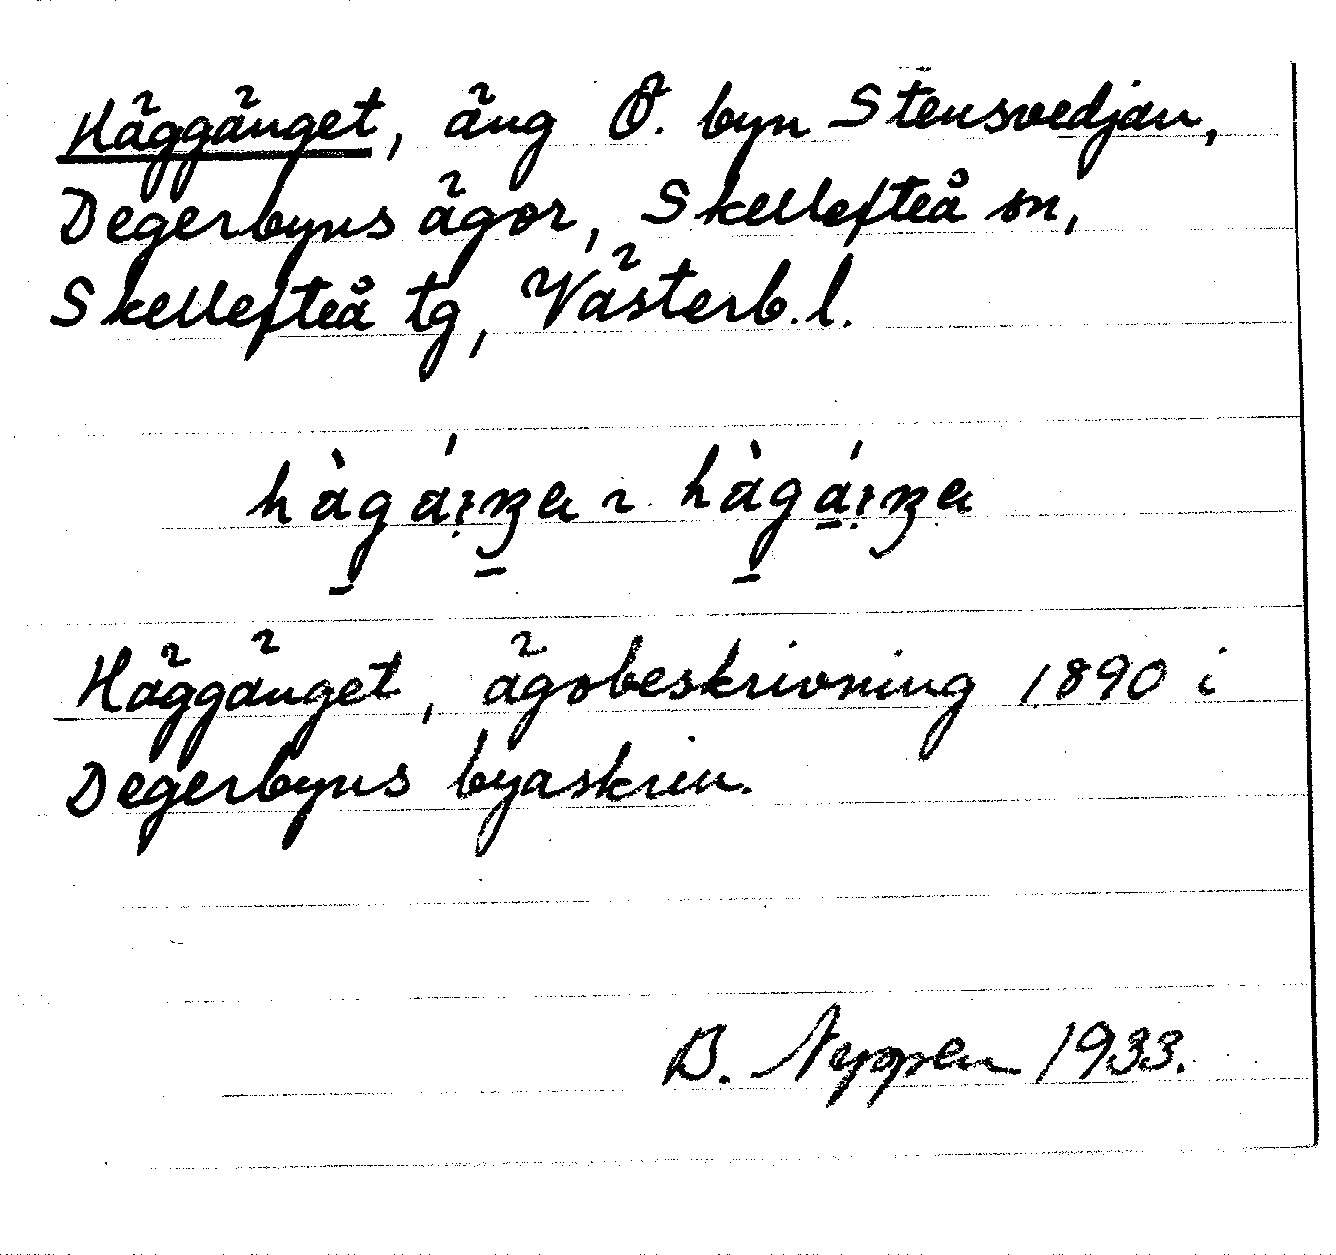 Häggänget, äng Ö. byn Stensvedjan,
Degerbyns ägor, Skellefteå sn,
Skellefteå tg, Västerb. l.
Häggänget, ägobeskrivning 1890 i
Degerbyns byaskrin.
B. Nyppen 1933.